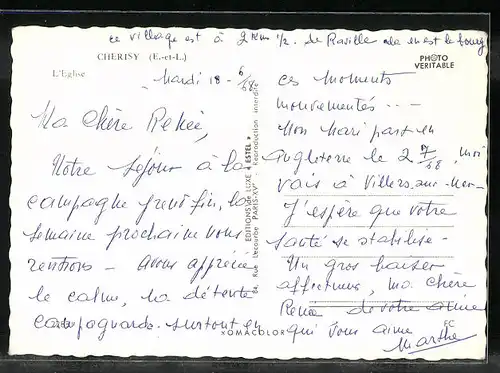 ce village est à 2 kms 1/2 de Raville en est le bourg
CHERISY (E.-et-L.)
L'Eglise
PHOTO
VERITABLE
Mardi 18 - 6/68
Ma chère Renée,
Notre séjour à la
campagne prend fin, la
semaine prochaine nous
rentrons - Avons apprécié
le calme, la détente
campagnarde surtout en
ces moments
mouvementés ---
Mon mari part en
Angleterre le 2 /68, moi
vais à Villers sur Mer -
J'espère que votre
santé se stabilise -
Un gros baiser
affectueux, ma chère
Renée de votre amie
qui vous aime
Marthe
EDITIONS de LUXE « ESTEL »
84, Rue Lecourbe PARIS-XV° - Reproduction interdite
XOMACOLOR
FC